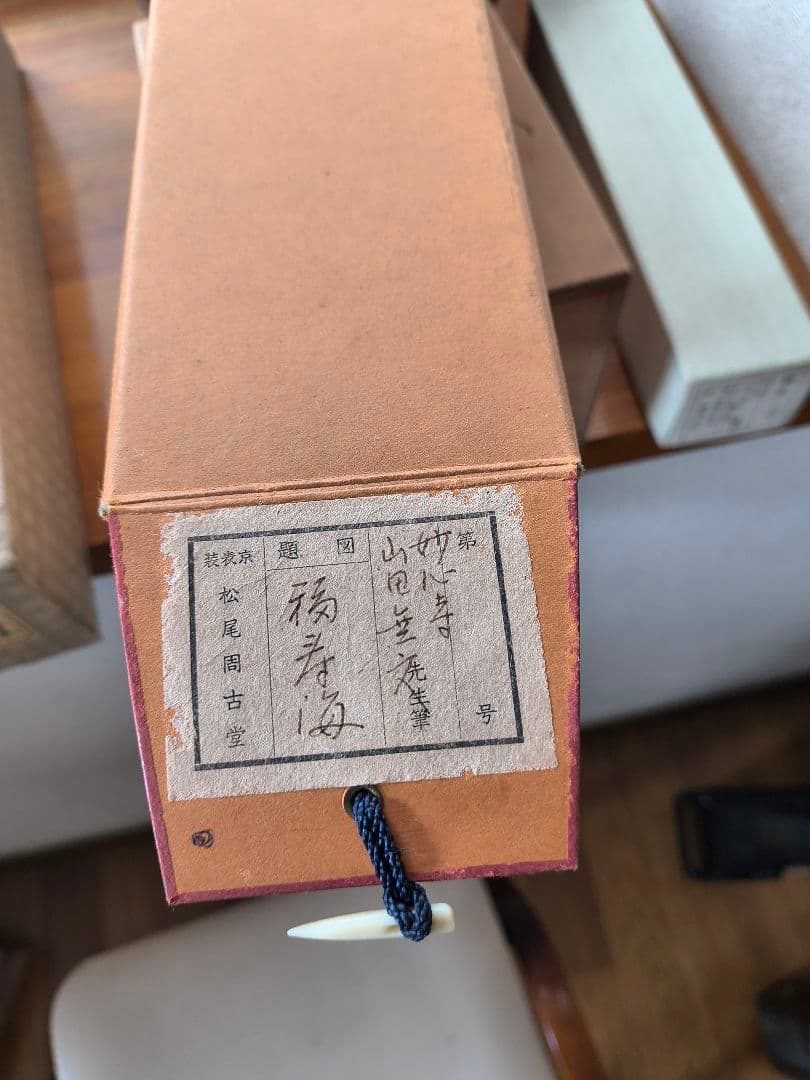 第　　号
妙心寺
山田無文先生筆
図題
福寿海
京表装
松尾周古堂